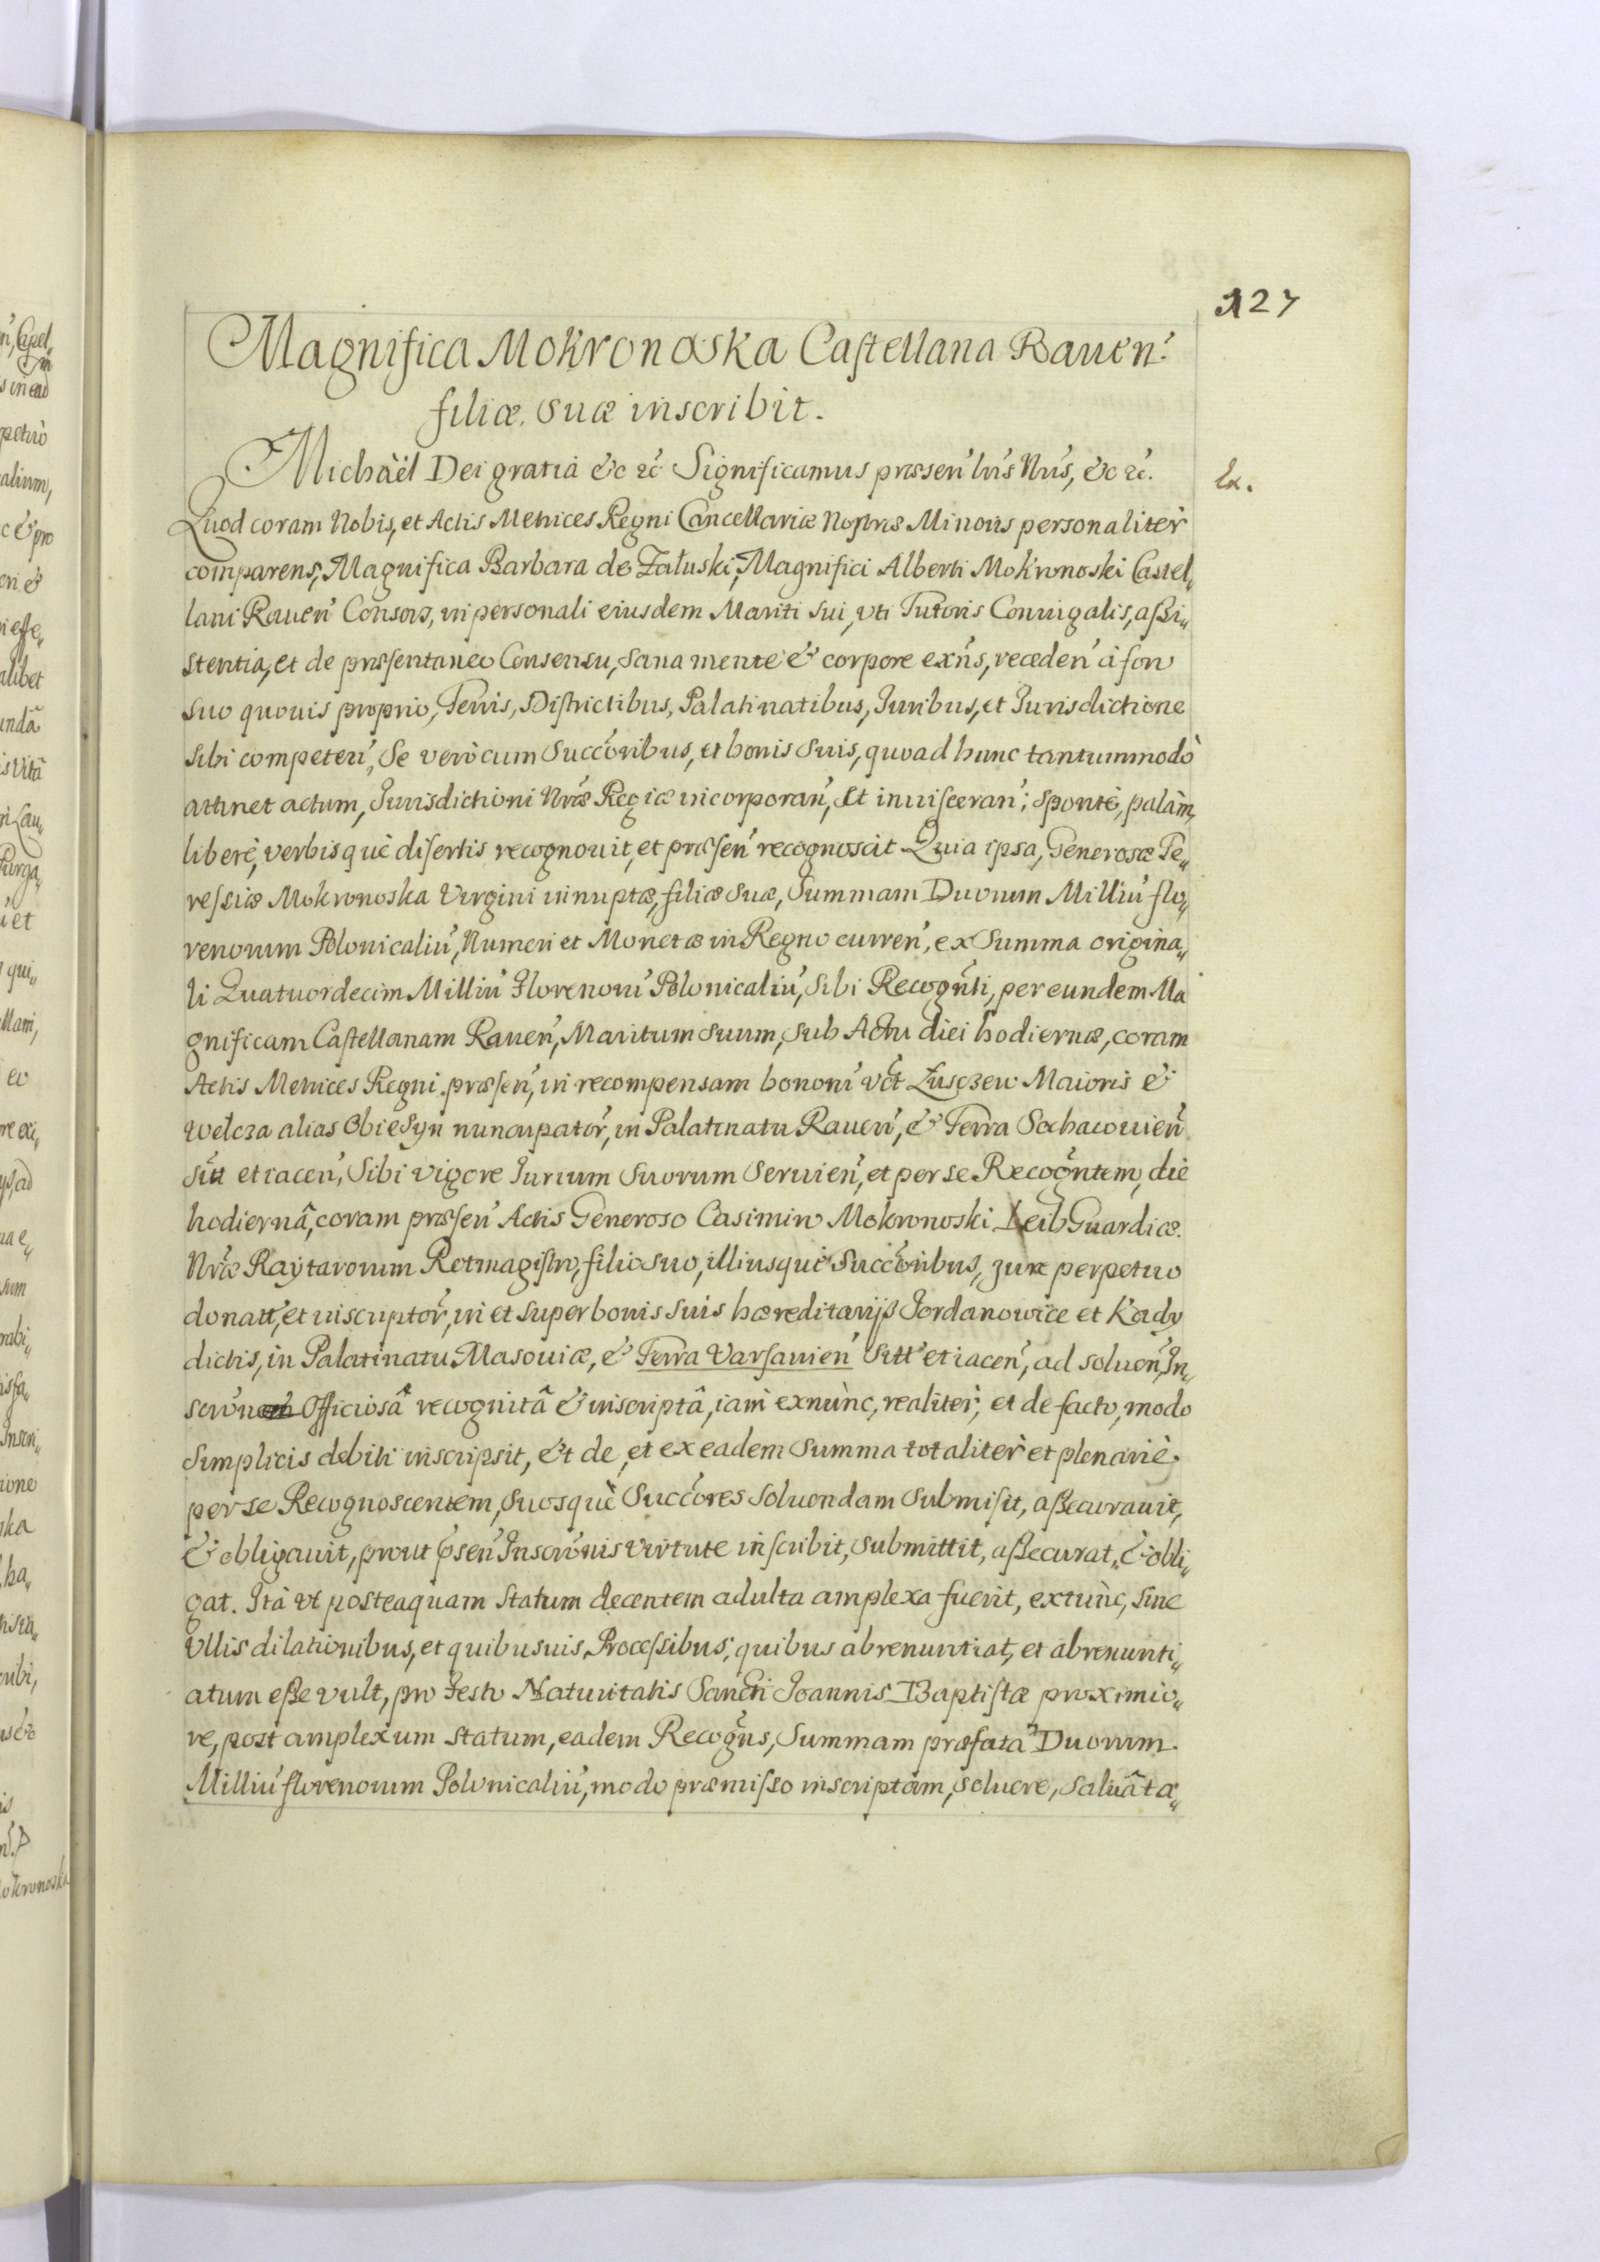 127
Magnifica Mokronoska Castellana Rauen̄
filiæ suæ inscribit.
Michaël Dei gratiâ &c ꝛc̄ Significamus præsen̄ lr̄is Nr̄is, &c ꝛc̄.
Ex.
Quod coram Nobis, et Actis Metrices Regni Cancellariæ Nostræ Minoris personalitèr
comparens, Magnifica Barbara de Załuski, Magnifici Alberti Mokronoski Castel„
lani Rauen̄ Consors, in personali eiusdem Mariti sui, vti Tutoris Coniugalis, assi„
stentia, et de præsentaneo Consensu, sana mente & corpore exn̄s, receden̄ à foro
suo quouis proprio, Terris, Districtibus, Palatinatibus, Juribus, et Jurisdictione
sibi competen̄, Se verò cum Succōribus, et bonis suis, quoad hunc tantummodò
attinet actum, Jurisdictioni Nr̄æ Regiæ incorporan̄, Et inuisceran̄; spontè, palàm,
liberè, verbisquè disertis recognouit, et præsen̄ recognoscit Quia ipsa, Generosæ Te„
ressiæ Mokronoska Virgini innuptæ, filiæ suæ, Summam Duorum Milliū flo„
renorum Polonicaliū, Numeri et Monetæ in Regno curren̄, ex Summa origina„
li Quatuordecim Milliū Florenorū Polonicaliū, sibi Recogn̄ti, per eundem Ma
gnificam Castellanam Rauen̄, Maritum suum, sub Actu diei hodiernæ, coram
Actis Metrices Regni præsen̄, in recompensam bonorū vc̄t Łusczew Maioris &
Wełcza alias Obiesyn nuncupator̄, in Palatinatu Rauen̄, & Terra Sochacouien̄
sitt̄ et iacen̄, Sibi vigore Jurium suorum seruien̄, et per se Recogn̄tem, die
hodiernâ, coram præsen̄ Actis Generoso Casimiro Mokronoski Leib Guardiæ
Nr̄æ Raÿtarorum Rotmagistro, filio suo, illiusquè Succōribus, jure perpetuo
donatt̄, et inscriptor̄, in et super bonis suis hæreditarijs Jordanowice et Kady
dictis, in Palatinatu Masouiæ, & Terra Varsauien̄ sitt̄ et iacen̄, ad soluen̄, In„
scrōn Officiosâ recognitâ & inscriptâ, iam exnùnc, realitèr, et de facto, modo
simplicis debiti inscripsit, Et de, et ex eadem summa totalitèr et plenariè,
per se Recognoscentem, suosquè Succōres soluendam submisit, assecurauit,
& obligauit, prout p̄sen̄ Inscrōnis virtute inscribit, submittit, assecurat, & obli„
gat. Ità vt posteaquam statum decentem adulta amplexa fuerit, extùnc, sine
vllis dilationibus, et quibusuis Processibus, quibus abrenuntiat, et abrenunti„
atum esse vult, pro Festo Natiuitatis Sancti Joannis Baptistæ proximio„
re, post amplexum statum, eadem Recogn̄s, Summam præfatā Duorum
Milliū florenorum Polonicaliū, modo præmisso inscriptam, soluere, saluâ ta„